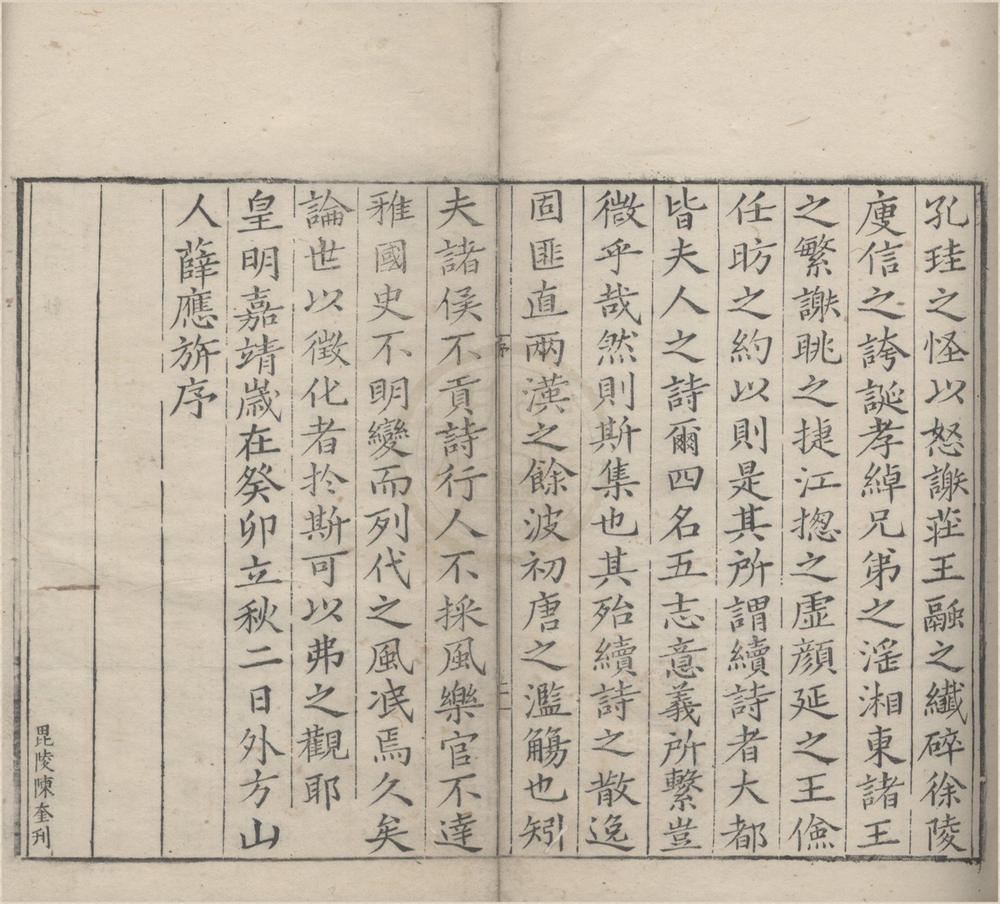 孔珪之怪以怒謝莊王融之纎碎徐陵
庾信之誇誕孝綽兄弟之淫湘東諸王
之繁謝朓之捷江揔之虛顔延之王儉
任昉之約以則是其所謂續詩者大都
皆夫人之詩爾四名五志意義所繫豈
微乎哉然則斯集也其殆續詩之散逸
固匪直兩漢之餘波初唐之濫觴也矧
序
二
夫諸侯不貢詩行人不採風樂官不達
雅國史不明變而列代之風泯焉久矣
論世以徵化者於斯可以弗之觀耶
皇明嘉靖歳在癸卯立秋二日外方山
人薛應旂序
毘陵陳奎刋